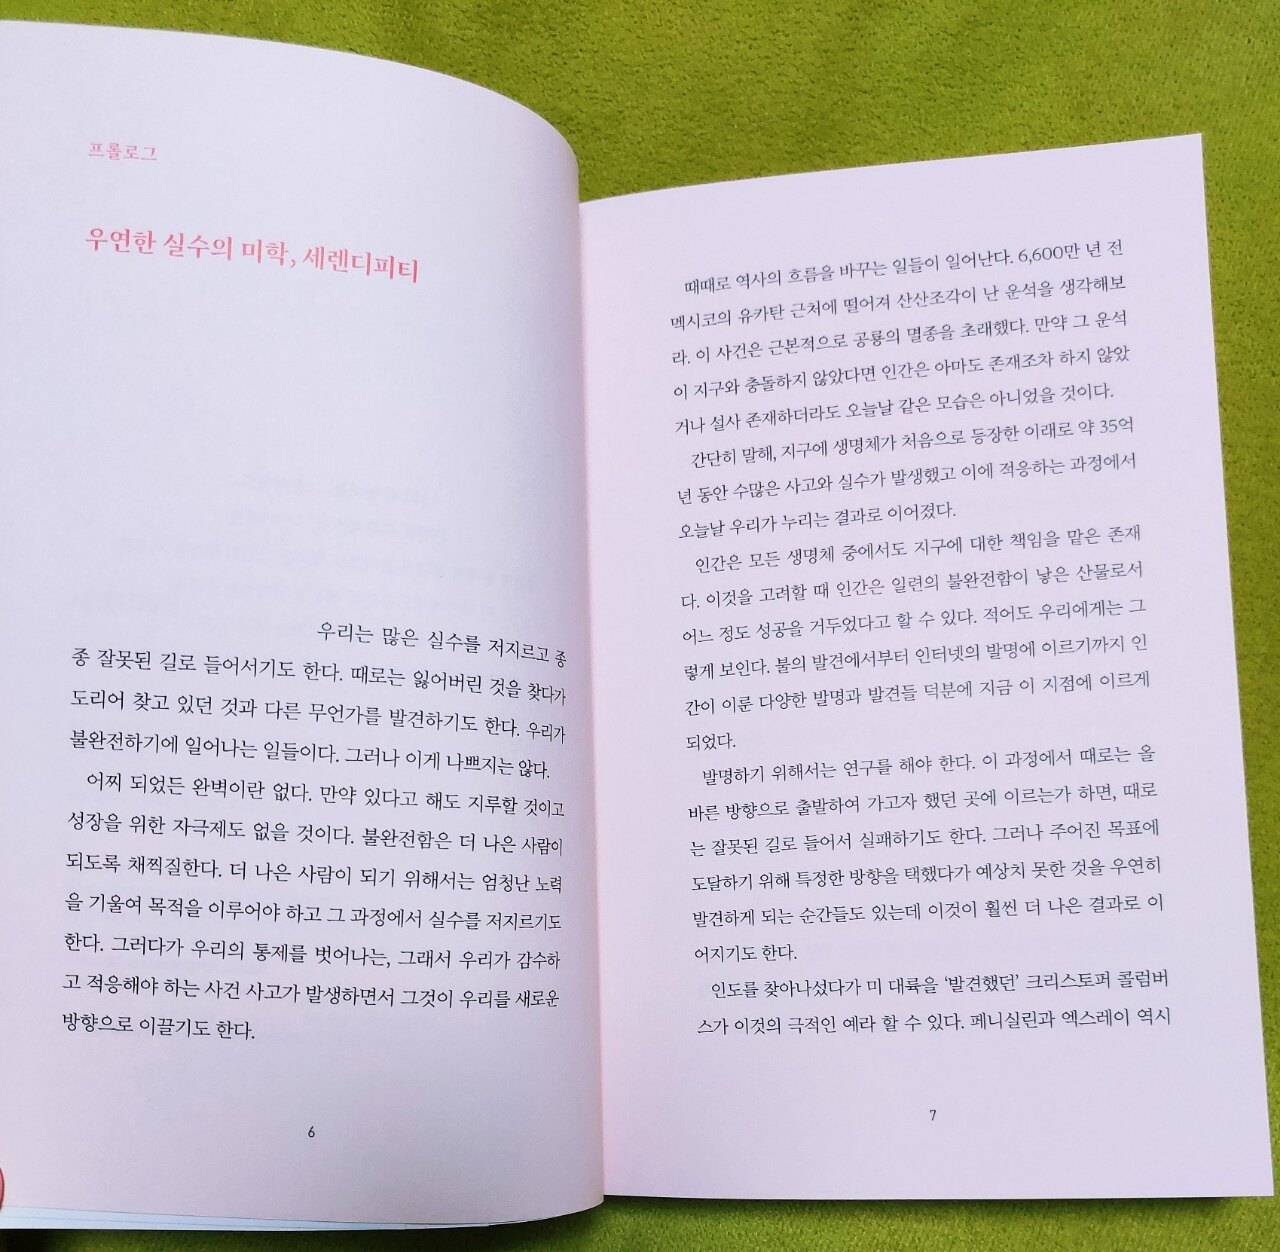 프롤로그
우연한 실수의 미학, 세렌디피티
우리는 많은 실수를 저지르고 종
종 잘못된 길로 들어서기도 한다. 때로는 잃어버린 것을 찾다가
도리어 찾고 있던 것과 다른 무언가를 발견하기도 한다. 우리가
불완전하기에 일어나는 일들이다. 그러나 이게 나쁘지는 않다.
어찌 되었든 완벽이란 없다. 만약 있다고 해도 지루할 것이고
성장을 위한 자극제도 없을 것이다. 불완전함은 더 나은 사람이
되도록 채찍질한다. 더 나은 사람이 되기 위해서는 엄청난 노력
을 기울여 목적을 이루어야 하고 그 과정에서 실수를 저지르기도
한다. 그러다가 우리의 통제를 벗어나는, 그래서 우리가 감수하
고 적응해야 하는 사건 사고가 발생하면서 그것이 우리를 새로운
방향으로 이끌기도 한다.
6
때때로 역사의 흐름을 바꾸는 일들이 일어난다. 6,600만 년 전
멕시코의 유카탄 근처에 떨어져 산산조각이 난 운석을 생각해보
라. 이 사건은 근본적으로 공룡의 멸종을 초래했다. 만약 그 운석
이 지구와 충돌하지 않았다면 인간은 아마도 존재조차 하지 않았
거나 설사 존재하더라도 오늘날 같은 모습은 아니었을 것이다.
간단히 말해, 지구에 생명체가 처음으로 등장한 이래로 약 35억
년 동안 수많은 사고와 실수가 발생했고 이에 적응하는 과정에서
오늘날 우리가 누리는 결과로 이어졌다.
인간은 모든 생명체 중에서도 지구에 대한 책임을 맡은 존재
다. 이것을 고려할 때 인간은 일련의 불완전함이 낳은 산물로서
어느 정도 성공을 거두었다고 할 수 있다. 적어도 우리에게는 그
렇게 보인다. 불의 발견에서부터 인터넷의 발명에 이르기까지 인
간이 이룬 다양한 발명과 발견들 덕분에 지금 이 지점에 이르게
되었다.
발명하기 위해서는 연구를 해야 한다. 이 과정에서 때로는 올
바른 방향으로 출발하여 가고자 했던 곳에 이르는가 하면, 때로
는 잘못된 길로 들어서 실패하기도 한다. 그러나 주어진 목표에
도달하기 위해 특정한 방향을 택했다가 예상치 못한 것을 우연히
발견하게 되는 순간들도 있는데 이것이 훨씬 더 나은 결과로 이
어지기도 한다.
인도를 찾아나섰다가 미 대륙을 ‘발견했던’ 크리스토퍼 콜럼버
스가 이것의 극적인 예라 할 수 있다. 페니실린과 엑스레이 역시
7